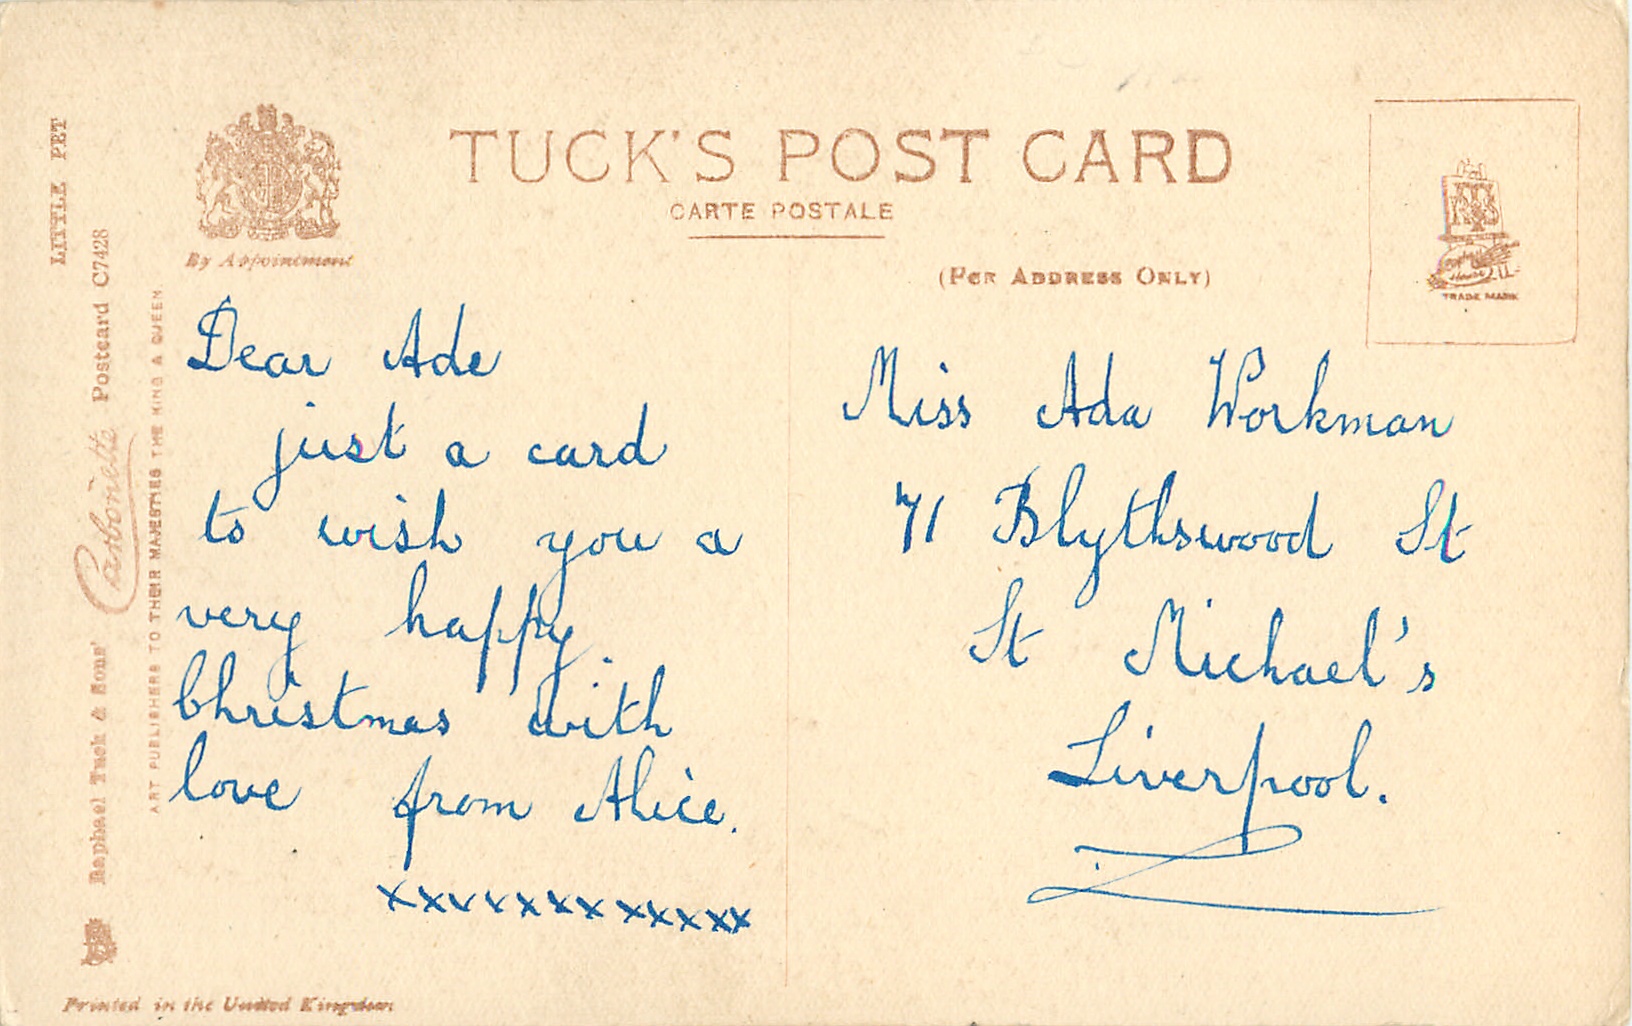 TUCK'S POST CARD
CARTE POSTALE
(FOR ADDRESS ONLY)
By Appointment
TRADE MARK
LITTLE PET
Raphael Tuck & Sons' "Carbonette" Postcard C7428
ART PUBLISHERS TO THEIR MAJESTIES THE KING & QUEEN
Dear Ade
just a card
to wish you a
very happy
Christmas with
love from Alice.
xxxxxxxxxxxx
Miss Ada Workman
71 Blythswood St
St Michael's
Liverpool.
Printed in the United Kingdom